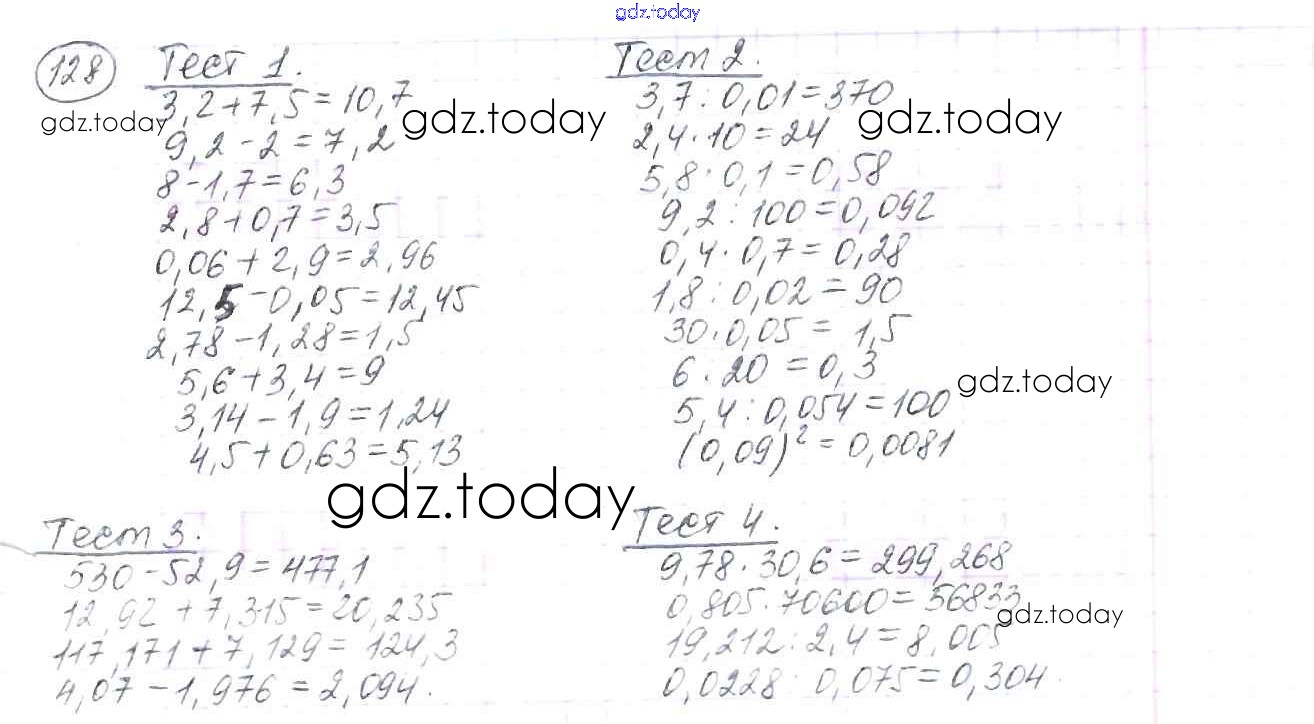 gdz.today
128 Тест 1.
3,2+7,5=10,7
9,2-2=7,2
8-1,7=6,3
2,8+0,7=3,5
0,06+2,9=2,96
12,5-0,05=12,45
2,78-1,28=1,5
5,6+3,4=9
3,14-1,9=1,24
4,5+0,63=5,13
Тест 2.
3,7:0,01=370
2,4·10=24
5,8·0,1=0,58
9,2:100=0,092
0,4·0,7=0,28
1,8:0,02=90
30·0,05=1,5
6·20=0,3
5,4:0,054=100
(0,09)²=0,0081
Тест 3.
530-52,9=477,1
12,92+7,315=20,235
117,171+7,129=124,3
4,07-1,976=2,094.
Тест 4.
9,78·30,6=299,268
0,805·70600=56833
19,212:2,4=8,005
0,0228:0,075=0,304
gdz.today
gdz.today
gdz.today
gdz.today
gdz.today
gdz.today